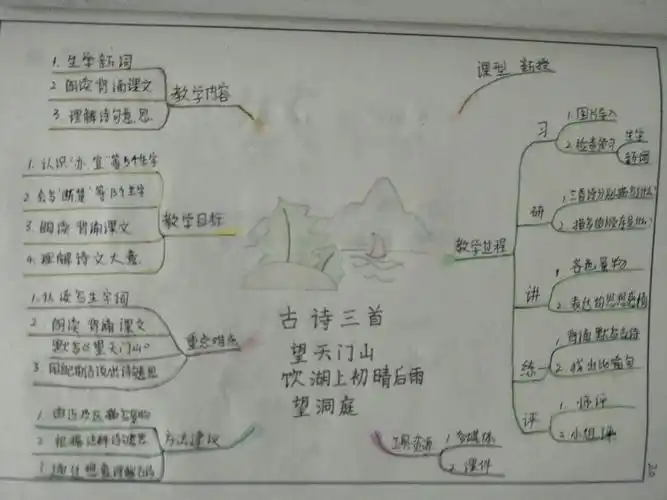 教学内容
1. 生字新词
2 朗读 背诵课文
3. 理解诗句意思.
教学目标
1. 认识"亦、宜"等5个生字
2 会写"断、楚"等13个生字
3. 朗读 背诵课文
4. 理解诗文大意.
重点难点
1. 认读写生字词
2. 朗读 背诵 课文
默写《望天门山》
3.
方法建议
1
2. 诗句意思
3
古诗三首
望天门山
饮湖上初晴后雨
望洞庭
课型 新授
教学过程
习
1. 图片导入
2. 检查预习
生字
新词
研
1. 三首诗分别描写什么
2.
讲
1. 各色景物
2. 表达的思想感情
练
1. 背诵 默写古诗
2. 找出比喻句
评
1. 师评
2. 小组评
工具资源
1 多媒体
2. 课件
20